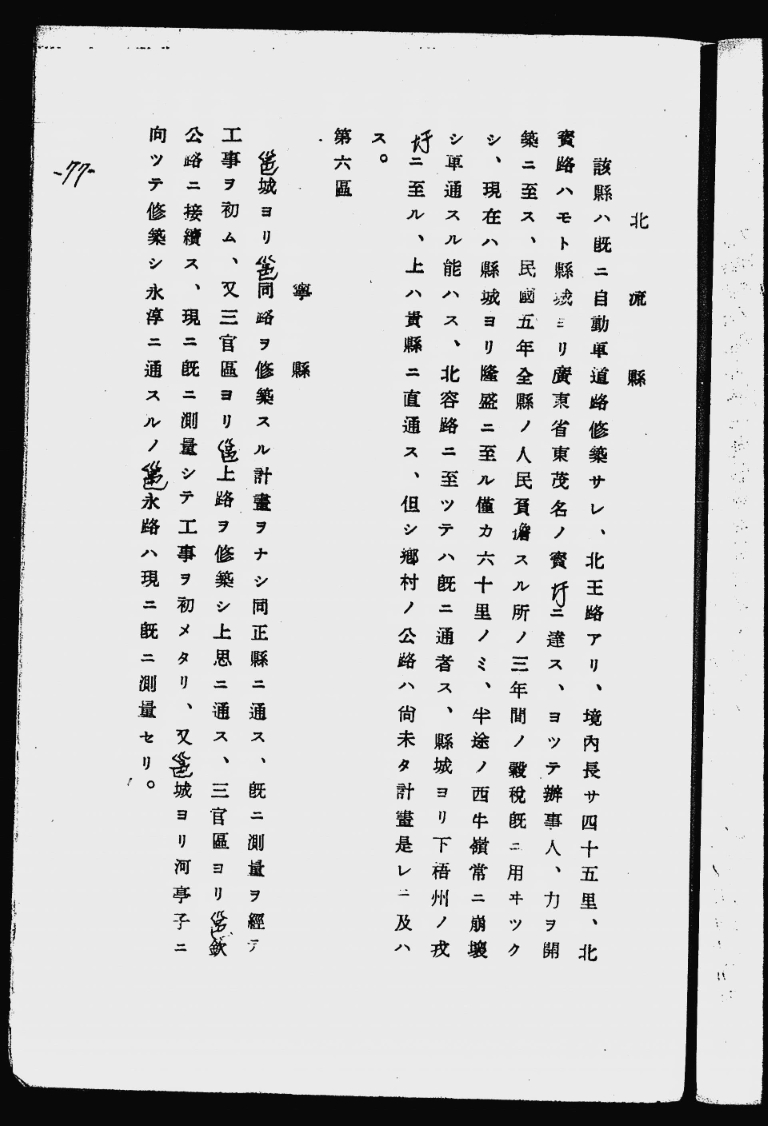 北流縣
該縣ハ既ニ自動車道路修築サレ、北王路アリ、境內長サ四十五里、北
賓路ハモト縣城ヨリ廣東省東茂名ノ賓圩ニ達ス、ヨツテ辦事人、力ヲ開
築ニ至ス、民國五年全縣ノ人民負擔スル所ノ三年間ノ穀稅既ニ用ヰツク
シ、現在ハ縣城ヨリ隆盛ニ至ル僅カ六十里ノミ、半途ノ西牛嶺常ニ崩壞
シ車通スル能ハス、北容路ニ至ツテハ既ニ通者ス、縣城ヨリ下梧州ノ戎
圩ニ至ル、上ハ貴縣ニ直通ス、但シ鄉村ノ公路ハ尙未タ計畫是レニ及ハ
ス。
第六區
寧縣
邕城ヨリ邕同路ヲ修築スル計畫ヲナシ同正縣ニ通ス、既ニ測量ヲ經テ
工事ヲ初ム、又三官區ヨリ邕上路ヲ修築シ上思ニ通ス、三官區ヨリ邕欽
公路ニ接續ス、現ニ既ニ測量シテ工事ヲ初メタリ、又邕城ヨリ河亭子ニ
向ツテ修築シ永淳ニ通スルノ邕永路ハ現ニ既ニ測量セリ。
-77-